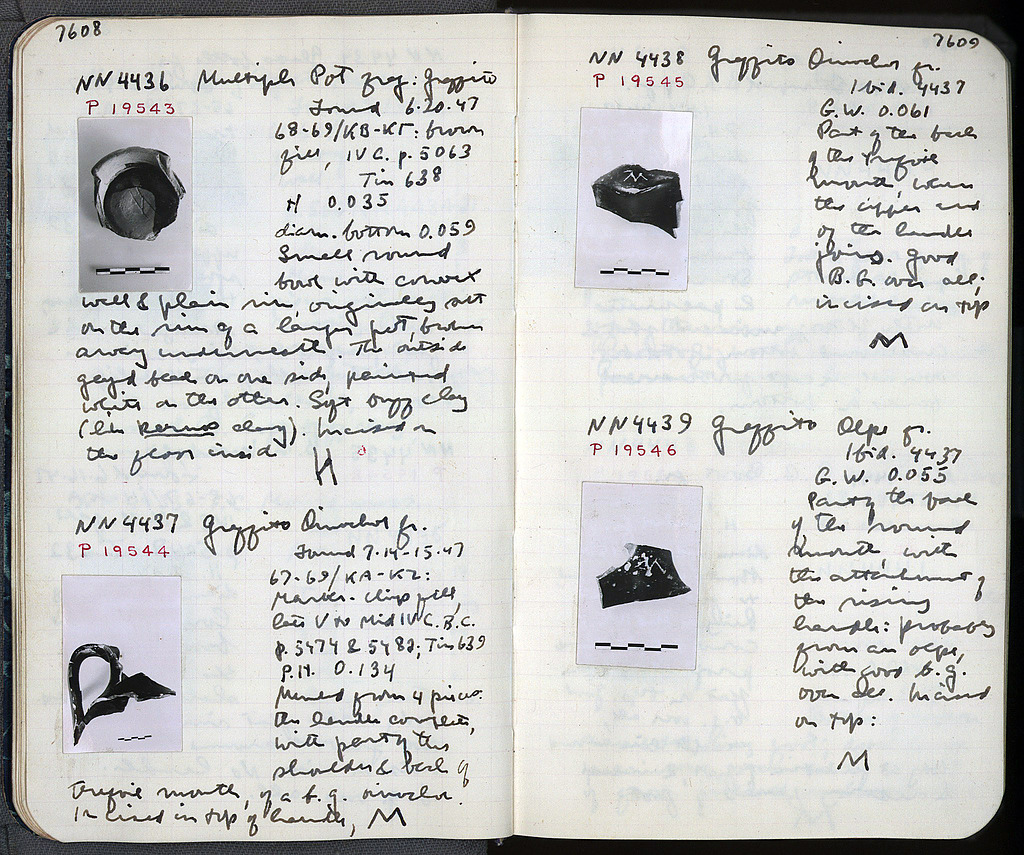 7608
NN 4436 Multiple Pot frag: Graffito
P 19543
Found 6.20.47
68-69/KB-KΓ: brown
fill, IV C. p. 5063
Tin 638
H 0.035
diam. bottom 0.059
Small round
bowl with convex
wall & plain rim, originally set
on the rim of a larger pot, broken
away underneath. The outside
glazed black on one side, painted
white on the other. Soft buff clay
(like Kernos clay). Incised on
the floor inside
H
NN 4437 Graffito Oinochoe fr.
P 19544
Found 7.14-15.47
67-69/KA-KZ:
Marble-chip fill,
late V to Mid IV C. B.C.
p. 5474 & 5482; Tin 639
P.H. 0.134
Mended from 4 pieces.
the handle complete,
with part of the
shoulder & back of
trefoil mouth, of a b.g. oinochoe.
Incised in top of handle, M
7609
NN 4438 Graffito Oinochoe fr.
P 19545
Ibid. 4437
G.W. 0.061
Part of the back
of the trefoil
mouth, where
the upper end
of the handle
joins. Good
B.G. over all;
incised on top
M
NN 4439 Graffito Olpe fr.
P 19546
Ibid. 4437
G.W. 0.055
Part of the back
of the round
mouth, with
the attachment of
the rising
handle: probably
from an olpe,
with good b.g.
over all. Incised
on top:
M